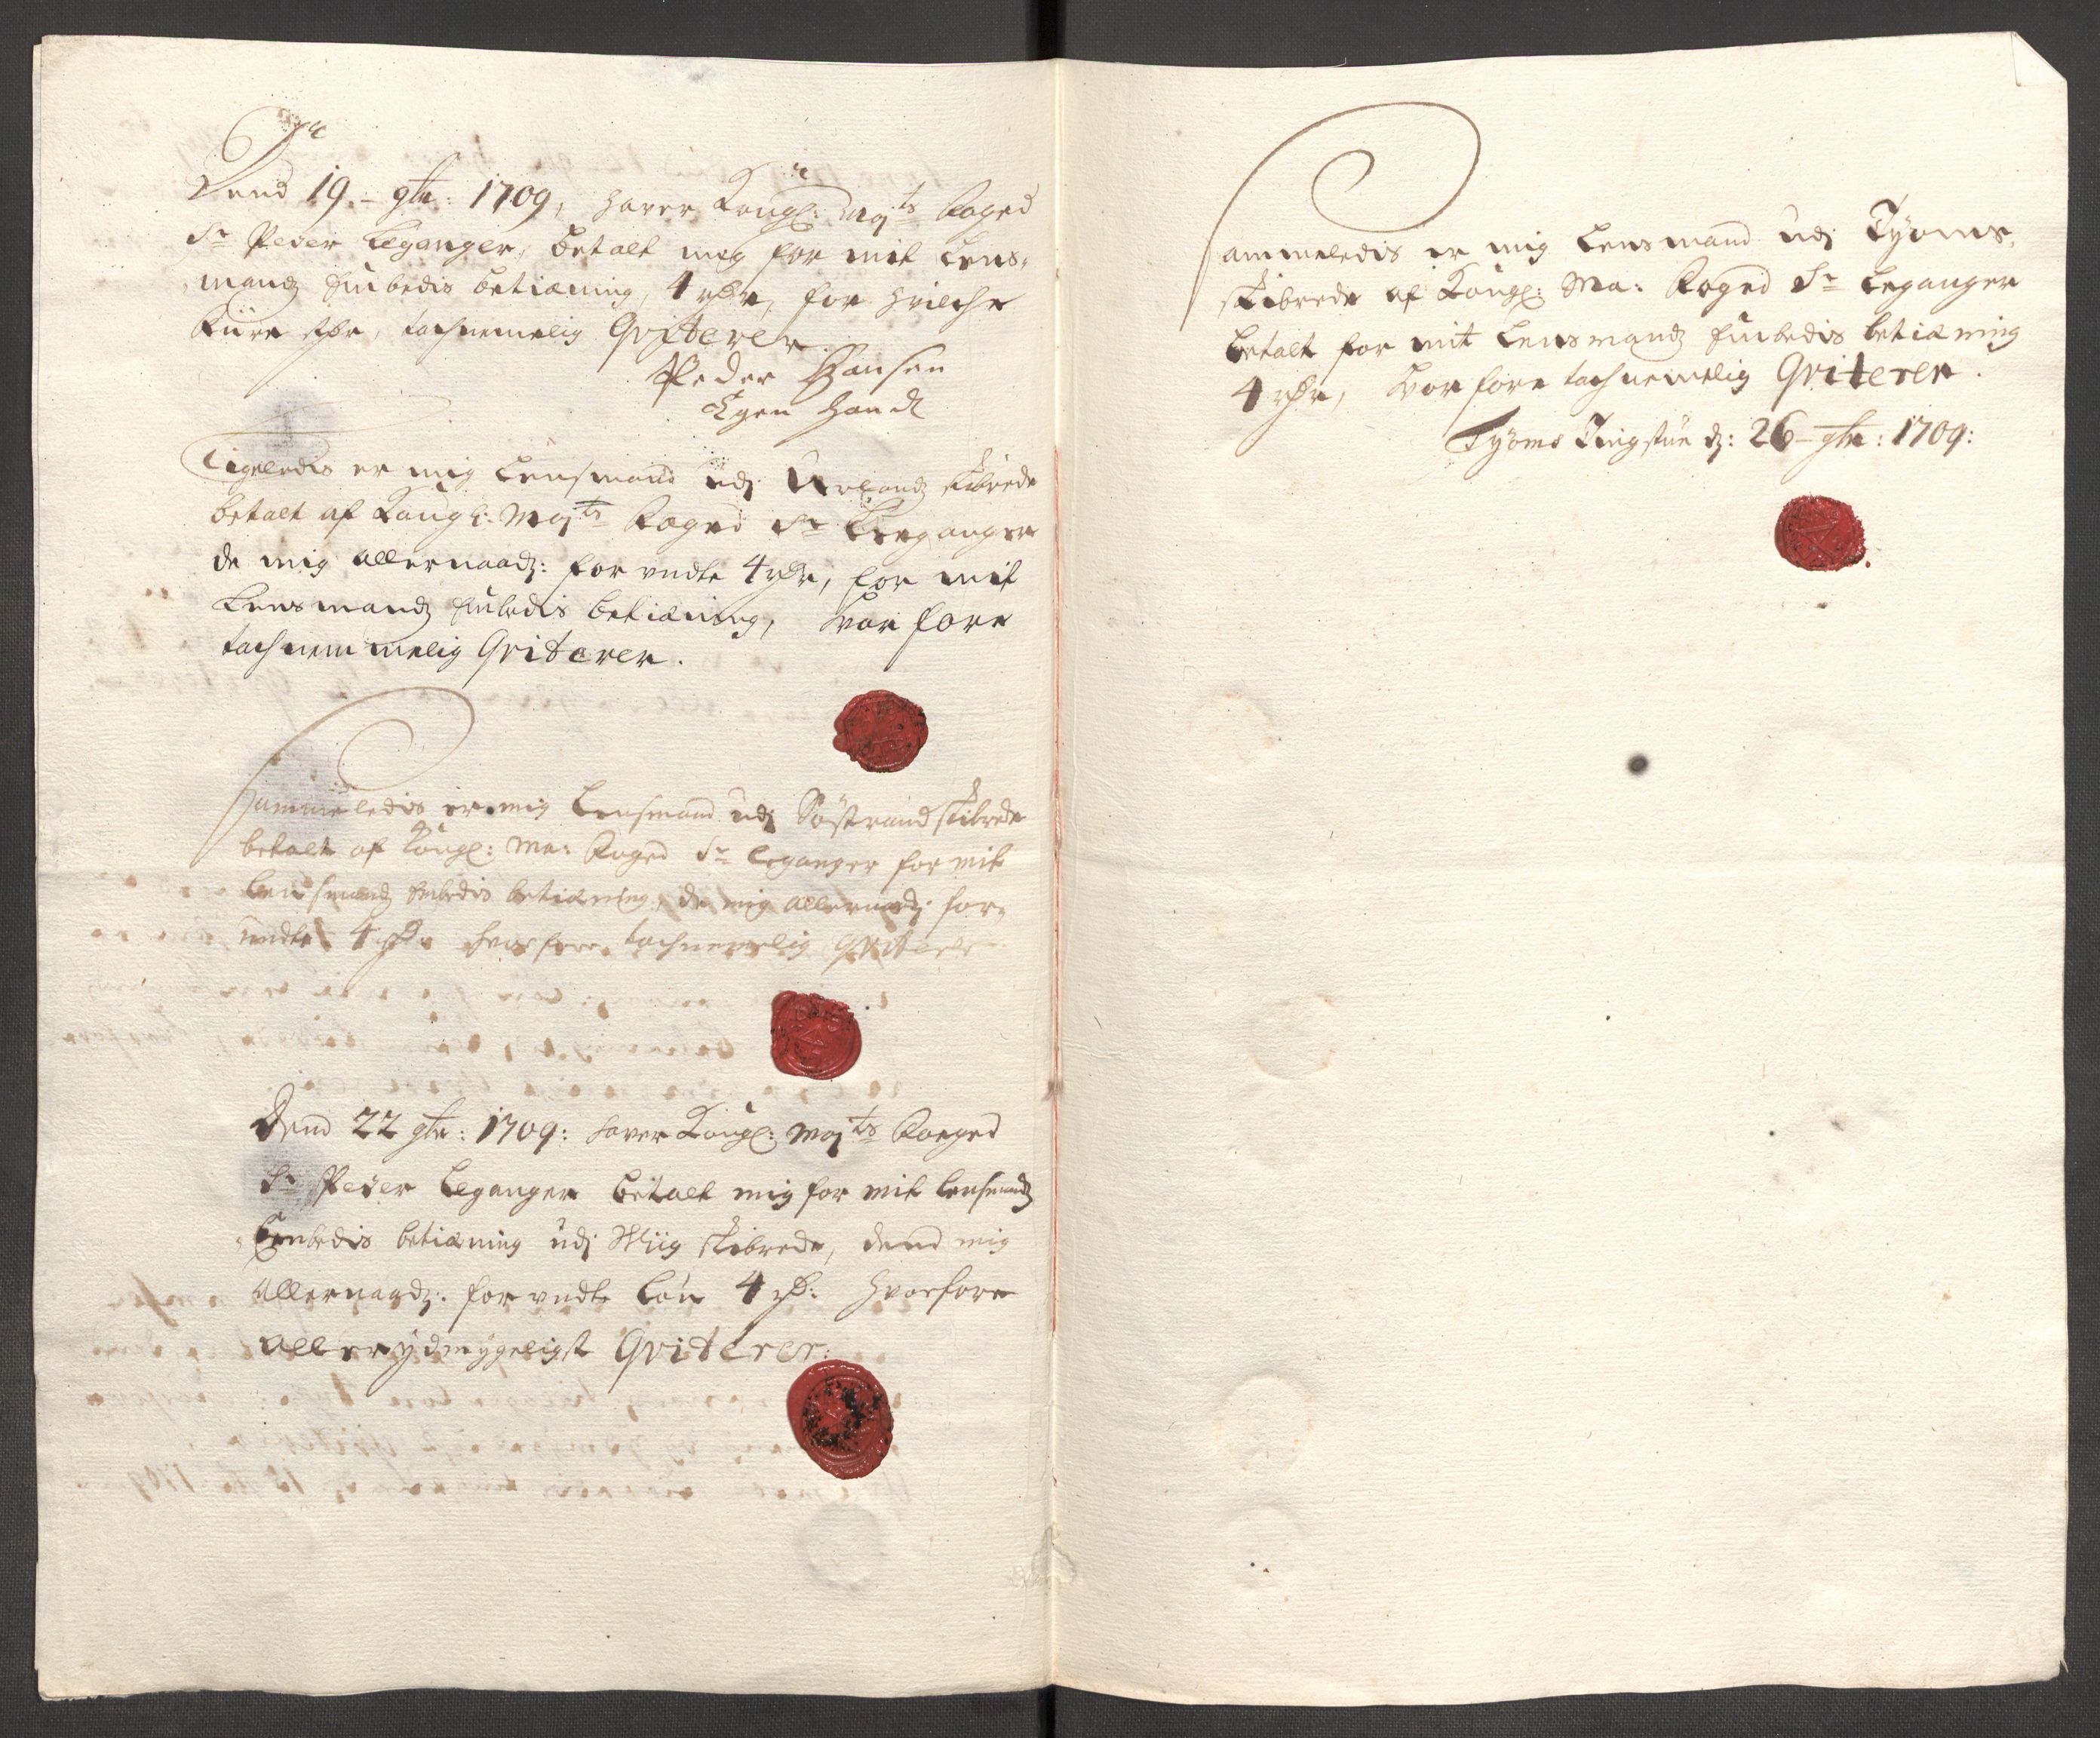 Dend 19. 9br: 1709, haver Kongl: Majts Foged
Sr Peder Leganger, betalt mig for mit Lens-
mandz Embedis betiening, 4 rdr, for hvilche
fiire rdr, tachnemelig Qviterer
Peder Hansen
Egen Hand
Ligeledis er mig Lensmand udj Urlandz skibrede
betalt af Kongl: Majts Foged Sr Leeganger
de mig allernaadz: forundte 4 rdr, for mit
Lensmandz Embedis betiening, hvorfore
tachnemmelig Qviterer.
Sammeledis er mig Lensmand udj Søstrand skibrede
betalt af Kongl: Ma: Foged Sr Leganger for mit
Lensmandz Embedis betiening, de mig allernaadz for-
undte 4 rdr hvorfore tachnemelig Qviterer
Dend 22 9br: 1709: haver Kongl: Majts Foeged
Sr Peder Leganger betalt mig for mit Lensmandz
Embedis betiening udj Wiig skibrede, dend mig
allernaadz: forundte Løn 4 rdr: hvorfore
allerydmygeligst Qviterer:
Sammeledis er mig Lensmand udj Tyoms
skibrede af Kongl: Ma: Foged Sr Leganger
betalt for mit Lensmandz Embedis betiening
4 rdr, hvorfore tachnemelig Qviterer.
Tyoms Tingstue d: 26 9br: 1709: